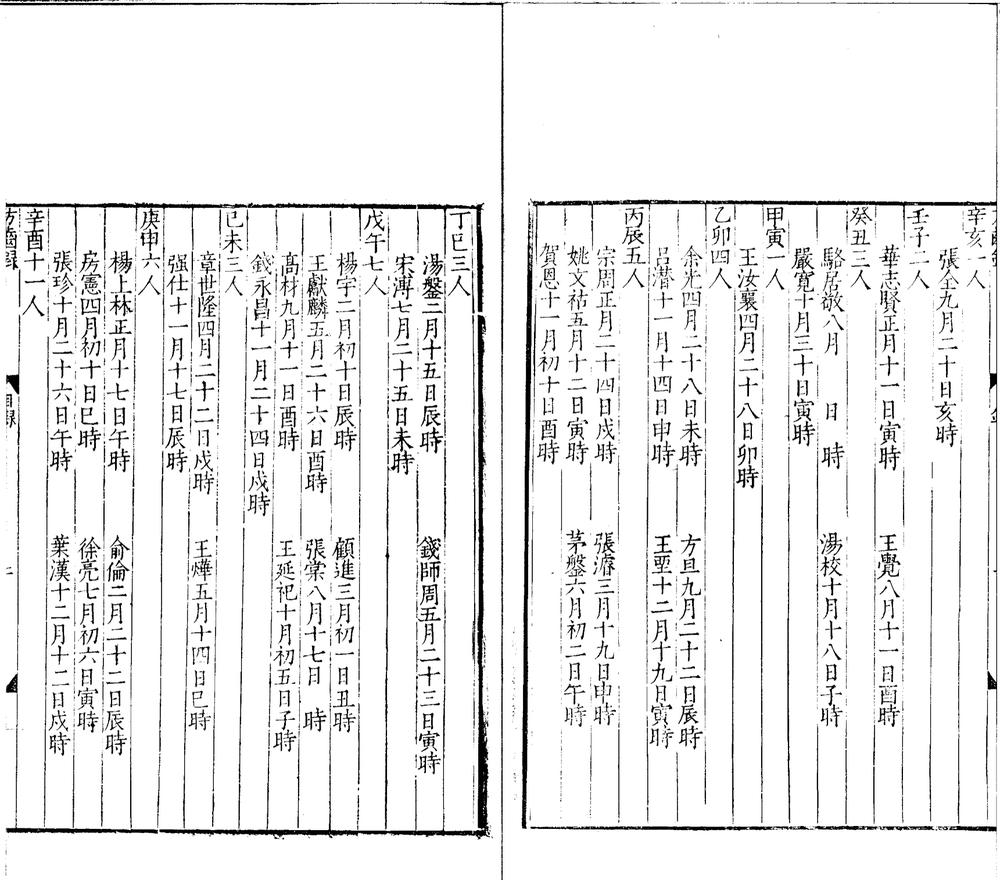 辛亥一人
張全九月二十日亥時
壬子二人
華志賢正月十一日寅時　王覺八月十一日酉時
癸丑三人
駱居敬八月　日　時　湯校十月十八日子時
嚴寬十月三十日寅時
甲寅一人
王汝襄四月二十八日卯時
乙卯四人
余光四月二十八日未時　方亘九月二十二日辰時
呂潛十一月十四日申時　王堊十二月十九日寅時
丙辰五人
宗周正月二十四日戌時　張濬三月十九日申時
姚文祜五月十二日寅時　茅鑿六月初二日午時
賀恩十一月初十日酉時
丁巳三人
湯鑿二月十五日辰時　錢師周五月二十三日寅時
宋溥七月二十五日未時
戊午七人
楊宇二月初十日辰時　顧進三月初一日丑時
王獻麟五月二十六日酉時　張棠八月十七日　時
高材九月十一日酉時　王延祀十月初五日子時
錢永昌十一月二十四日戌時
己未三人
章世隆四月二十二日戌時　王燁五月十四日巳時
强仕十一月十七日辰時
庚申六人
楊上林正月十七日午時　俞倫二月二十二日辰時
房憲四月初十日巳時　徐亮七月初六日寅時
張珍十月二十六日午時　葉漢十二月十二日戌時
辛酉十一人
方齒録
目録